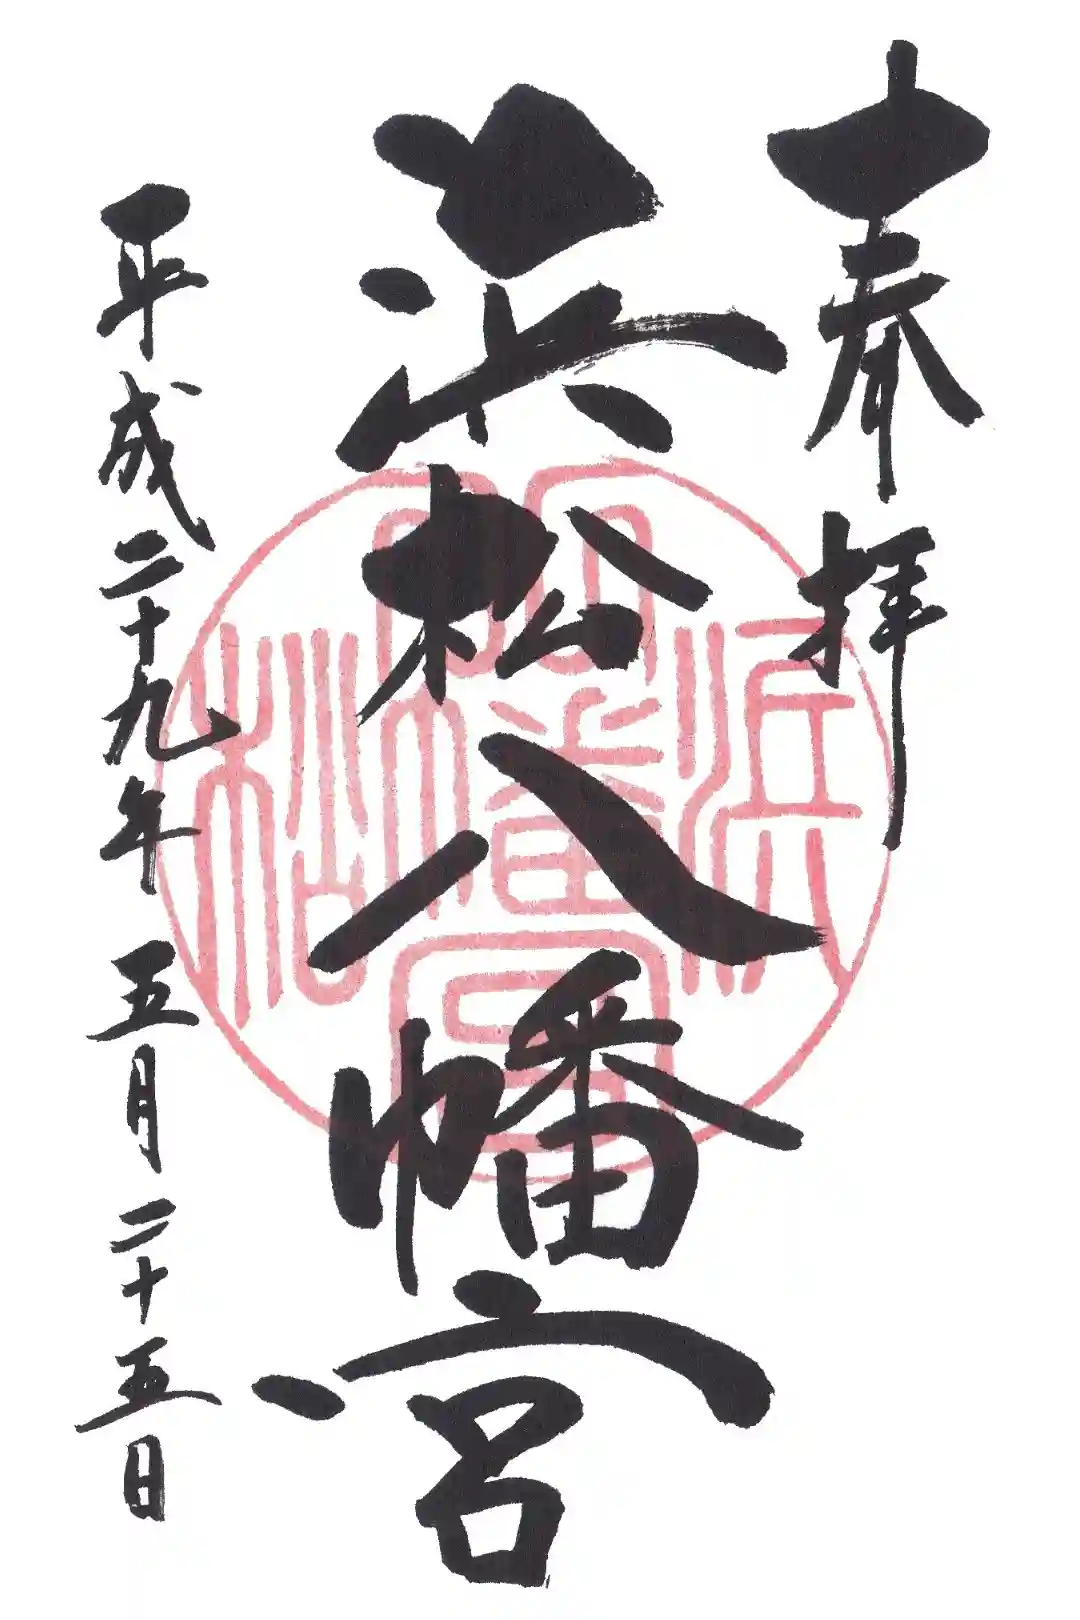 奉拝
浜松八幡宮
平成二十九年五月二十五日
浜松八幡宮